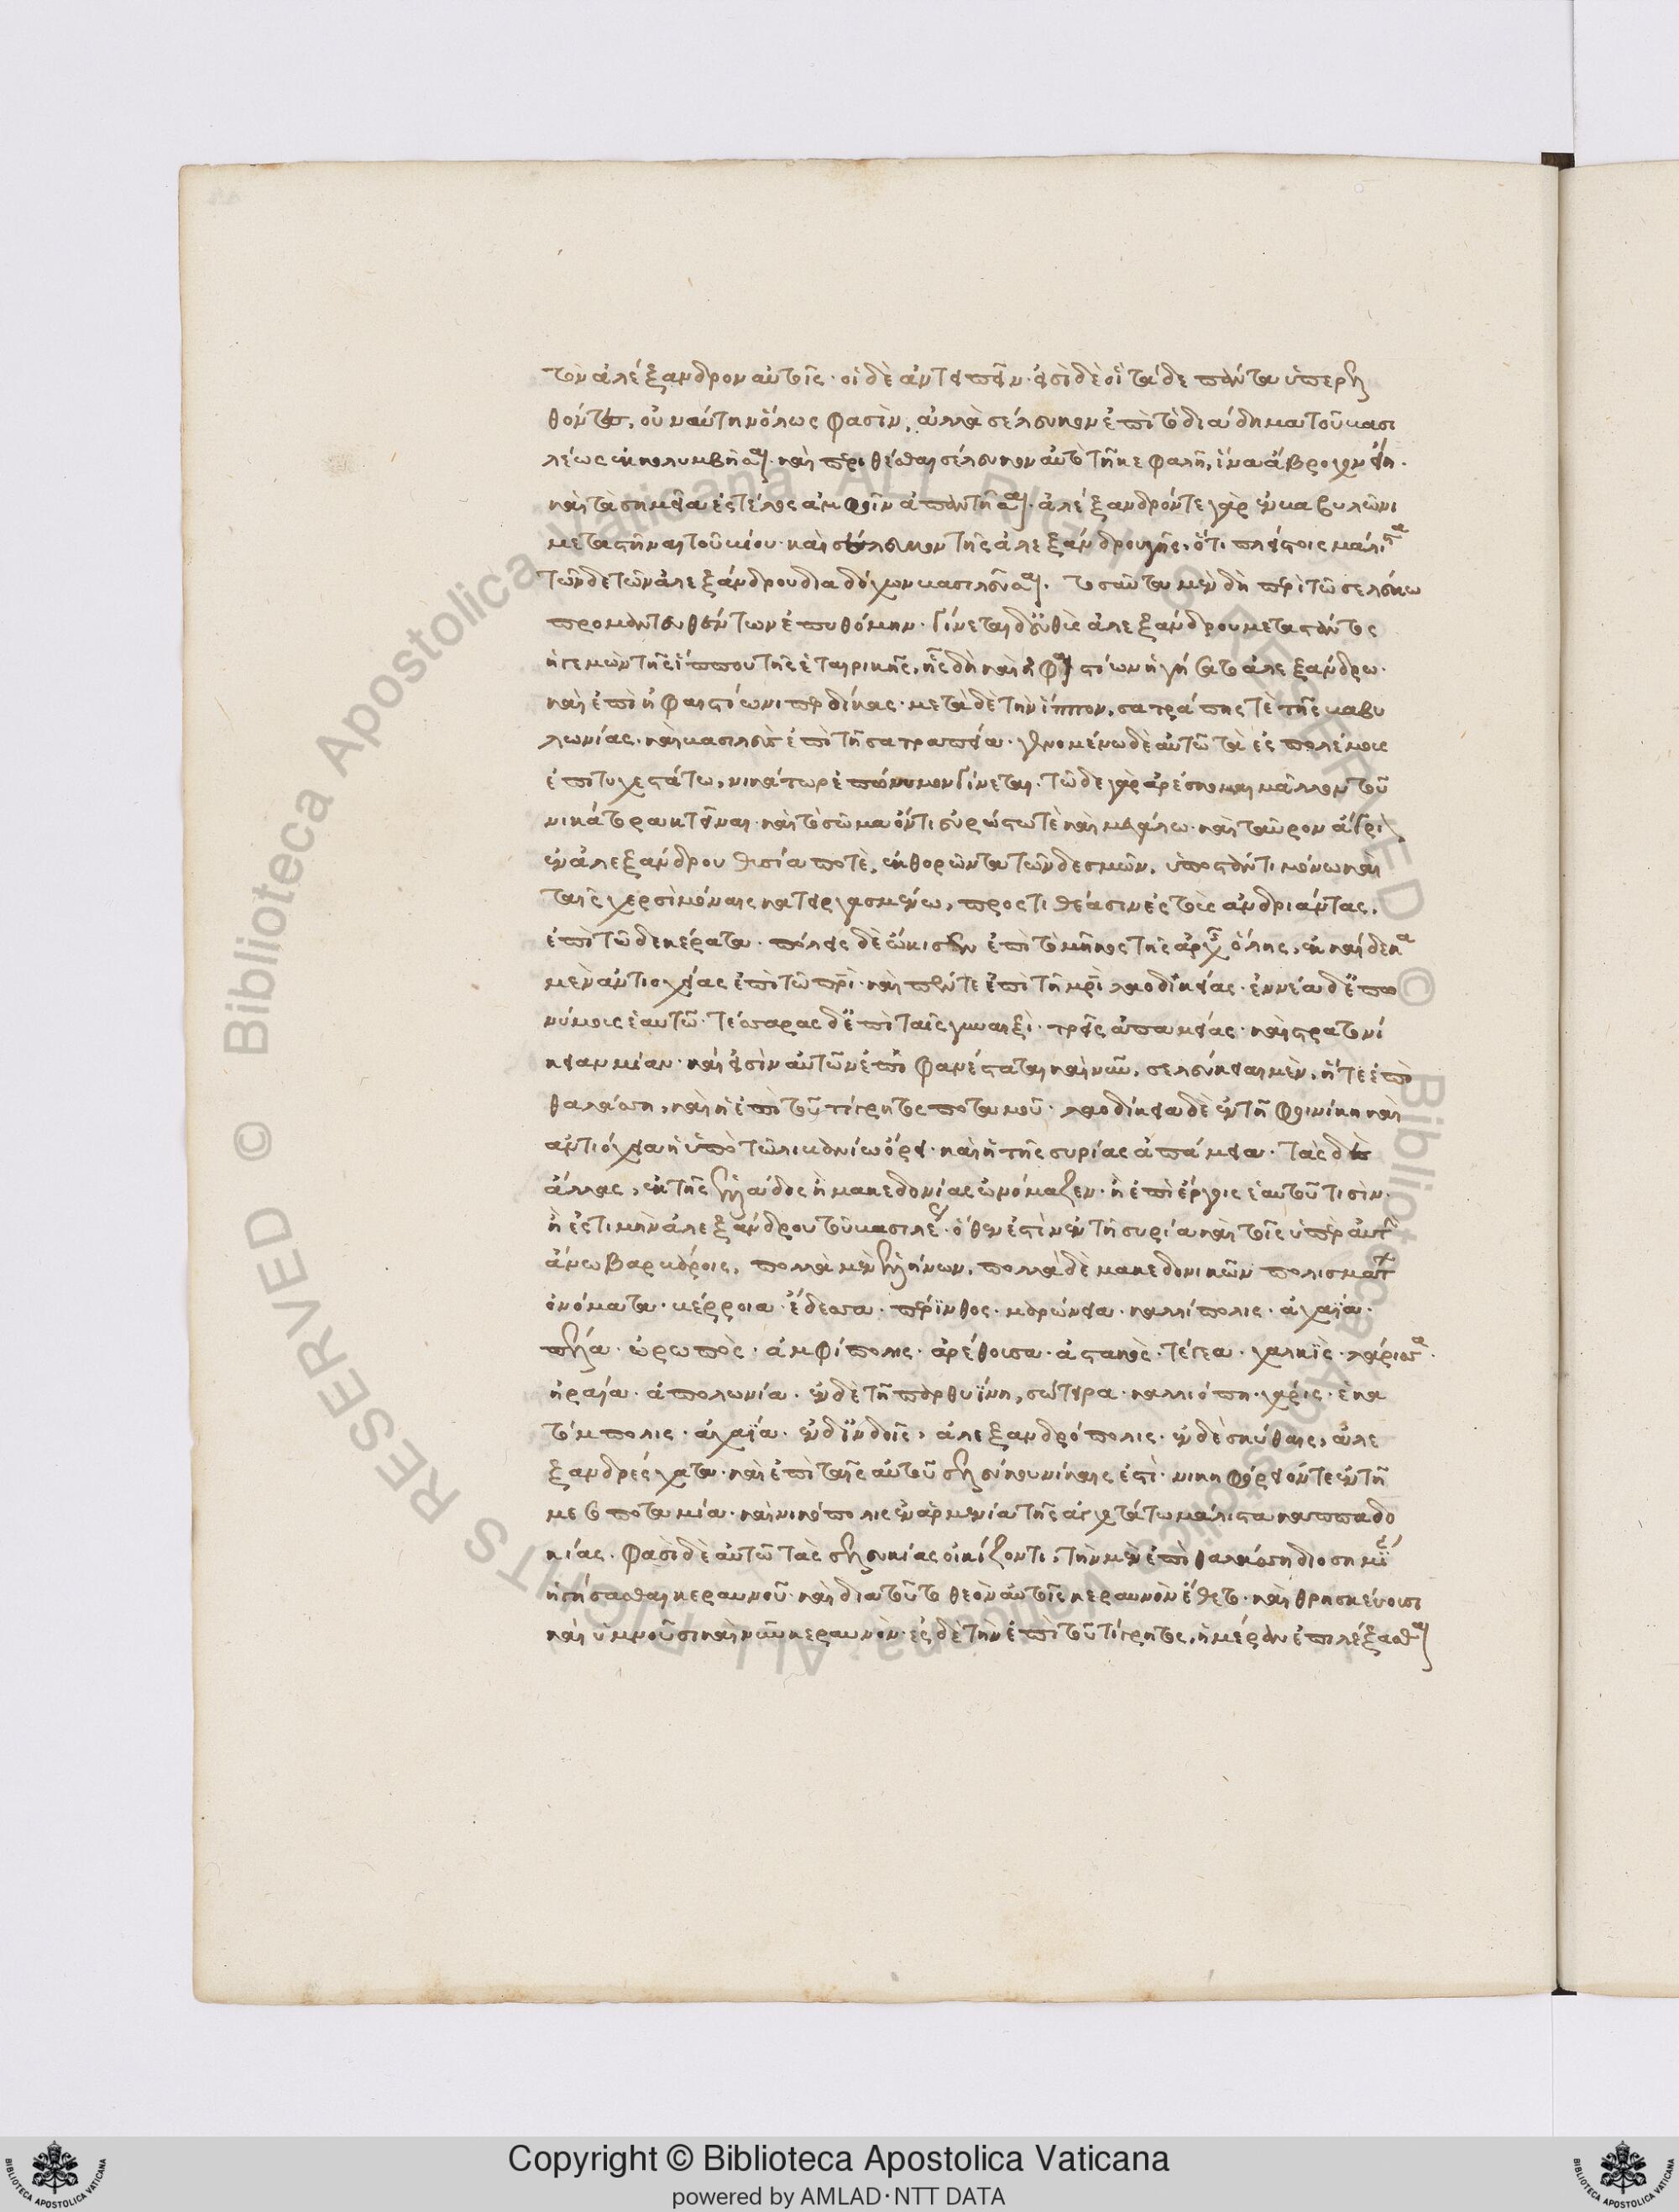 τὸν ἀλέξανδρον αὐτοῖς· οἱ δὲ ἀντειπεῖν· εἰσὶ δὲ οἳ τάδε πάντα ὑπερελ
θόντες, οὐ ναύτην ὅλως φασὶν, ἀλλὰ σέλευκον ἐπὶ τὸ διάδημα τοῦ βασι
λέως ἐκκολυμβῆσαι· καὶ περιθέσθαι σέλευκον αὐτὸ τῆ κεφαλῆ, ἵνα ἄβροχον εἴη·
καὶ τὰ σημεῖα ἐς τέλος ἀμφοῖν ἀπαντῆσαι· ἀλέξανδρόν τε γὰρ ἐν βαβυλῶνι
μεταστῆναι τοῦ βίου· καὶ σέλευκον τῆς ἀλεξάνδρου γῆς, ὅτι πλείστοις μάλιστα
τῶνδε τῶν ἀλεξάνδρου διαδόχων βασιλεῦσαι. τοσαῦτα μὲν δὴ περὶ τῶ σελεύκω
προμαντευθέντων ἐπυθόμην· γίνεται δ' εὐθὺς ἀλεξάνδρου μεταστάντος
ἡγεμὼν τῆς ἵππου τῆς ἑταιρικῆς, ἧς δὴ καὶ ἡφαιστίων ἡγήσατο ἀλεξάνδρω·
καὶ ἐπὶ ἡφαιστίωνι περδίκας· μετὰ δὲ τὴν ἵππον, σατράπης τὲ τῆς βαβυ
λωνίας· καὶ βασιλεὺς ἐπὶ τῆ σατραπεία· γενομένω δὲ αὐτῶ τὰ ἐς πολέμους
ἐπιτυχεστάτω, νικάτωρ ἐπώνυμον γίνεται. τῶδε γὰρ ἀρέσκομαι μᾶλλον τοῦ
νικάτορα κτεῖναι· καὶ τὸ σῶμα ὄντι εὐρώστω τὲ καὶ μεγάλω· καὶ ταῦρον ἄγριον
ἐν ἀλεξάνδρου θυσία ποτὲ, ἐκθορόντα τῶν δεσμῶν, ὑποστάντι μόνω καὶ
ταῖς χερσὶ μόναις κατειργασμένω, προστιθέασιν ἐς τοὺς ἀνδριάντας,
ἐπὶ τῶδε κέρατα· πόλεις δὲ ᾤκισεν ἐπὶ τὸ μῆκος τῆς ἀρχῆς ὅλης, ἑκκαίδεκα
μὲν ἀντιοχείας ἐπὶ τῶ πρὶ· καὶ πέντε ἐπὶ τῆ μρὶ λαοδικείας· ἐννέα δ' ἐπω
νύμους ἑαυτῶ· τέσσαρας δ' ἐπὶ ταῖς γυναιξὶ· τρεῖς ἀπαμείας· καὶ στρατονί
κειαν μίαν· καὶ εἰσὶν αὐτῶν ἐπιφανέσταται καὶ νῦν, σελεύκειαι μὲν, ἥ τε ἐπὶ
θαλάσση, καὶ ἡ ἐπὶ τοῦ τίγρητος ποταμοῦ· λαοδίκεια δὲ ἐν τῆ φοινίκη καὶ
ἀντιόχεια ἡ ὑπὸ τῶ λιβάνω ὄρει· καὶ ἡ τῆς συρίας ἀπάμεια· τὰς δὲ
ἄλλας, ἐκ τῆς ἑλλάδος ἢ μακεδονίας ὠνόμαζεν· ἢ ἐπὶ ἔργοις ἑαυτοῦ τισὶν·
ἢ ἐς τιμὴν ἀλεξάνδρου τοῦ βασιλέως· ὅθεν ἐστὶν ἐν τῆ συρία καὶ τοῖς ὑπὲρ αὐτὴν
ἄνω βαρβάροις, πολλὰ μὲν ἑλλήνων, πολλὰ δὲ μακεδονικῶν πολισμάτων
ὀνόματα· βέρροια· ἔδεσσα· πέρινθος· μαρώνεια· καλλίπολις· ἀχαΐα·
πέλλα· ὠρωπὸς· ἀμφίπολις· ἀρέθουσα· ἀστακὸς· τέγεα· χαλκὶς· λάρισσα·
ἡραία· ἀπολωνία· ἐν δὲ τῆ παρθυΐνη, σώτειρα· καλλιόπη· χάρις· ἑκα
τόμπολις· ἀχαΐα· ἐν δ' ἰνδοῖς, ἀλεξανδρόπολις· ἐν δὲ σκύθαις, ἀλε
ξανδρέσχατα· καὶ ἐπὶ ταῖς αὐτοῦ σελεύκου νίκαις ἐστὶ· νικηφόριόν τε ἐν τῆ
μεσοποταμία· καὶ νικόπολις ἐν ἀρμενία τῆς ἀγχοτάτω μάλιστα καππαδο
κίας. φασὶ δὲ αὐτῶ τὰς σελευκίας οἰκίζοντι, τὴν μὲν ἐπὶ θαλάσση διοσημίαν
ἡγήσασθαι κεραυνοῦ· καὶ διὰ τοῦτο θεὸν αὐτοῖς κεραυνὸν ἔθετο· καὶ θρησκεύουσι
καὶ ὑμνοῦσι καὶ νῦν κεραυνὸν· ἐς δὲ τὴν ἐπὶ τοῦ τίγρητος, ἡμέραν ἐπιλέξασθαι
Copyright © Biblioteca Apostolica Vaticana
powered by AMLAD·NTT DATA